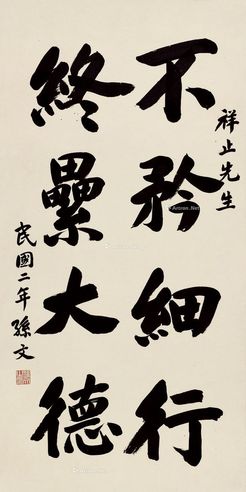 祥止先生
不矜細行
終纍大德
民國二年孫文